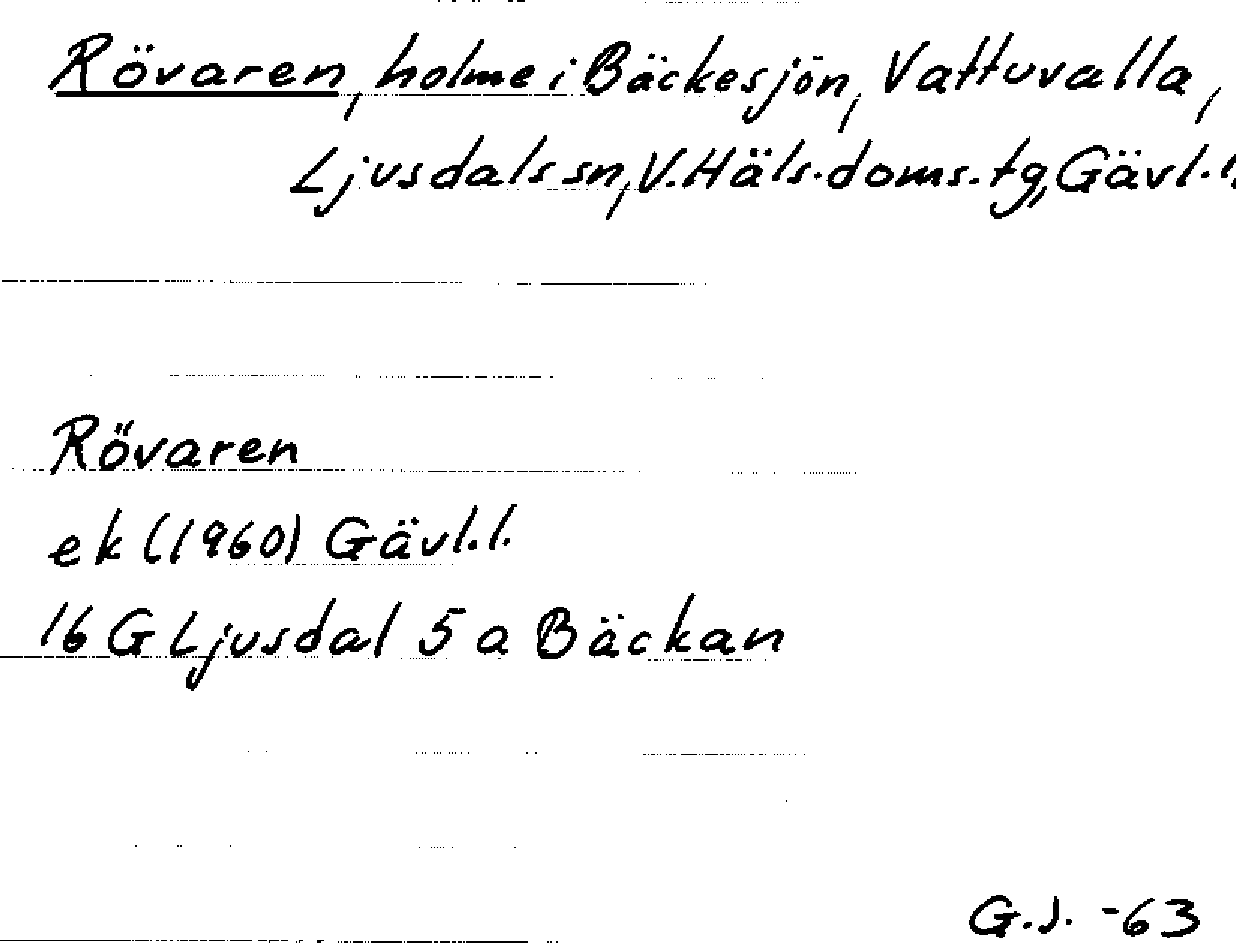 Rövaren, holme i Bäckesjön, Vattuvalla,
Ljusdals sn, V. Häls. doms. tg, Gävl. l.
Rövaren
ek (1960) Gävl. l.
16 G Ljusdal 5 a Bäckan
G.J. -63